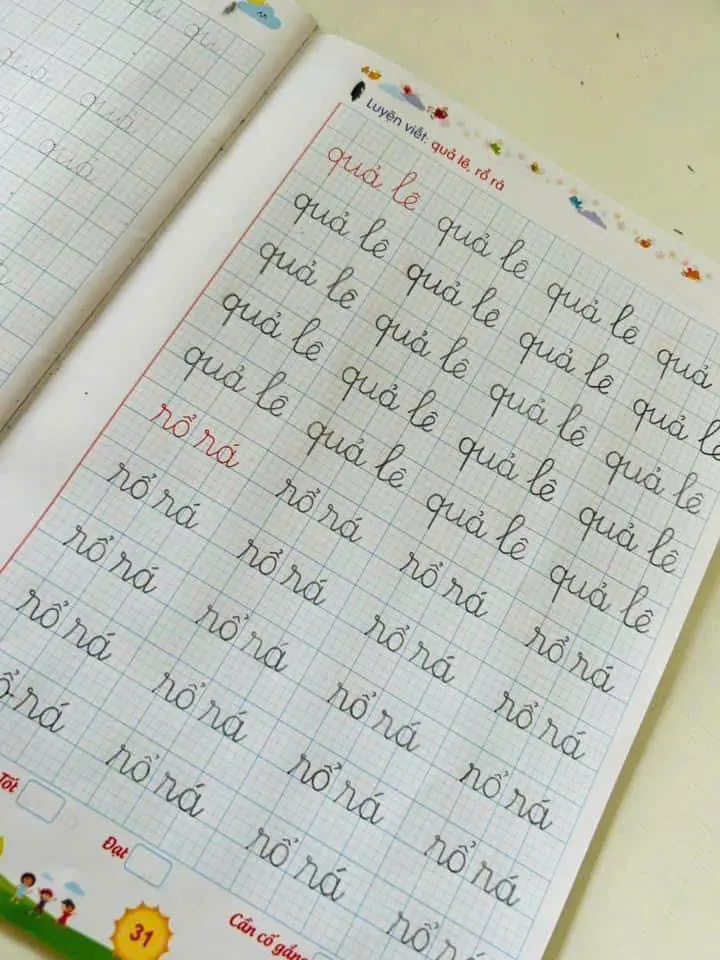 qu qu
qua quả
quả
Luyện viết: quả lê, rổ rá
quả lê quả lê quả lê quả
quả lê quả lê quả lê quả lê
quả lê quả lê quả lê quả lê
quả lê quả lê quả lê quả lê
quả lê quả lê quả lê quả lê
rổ rá rổ rá rổ rá rổ rá
rổ rá rổ rá rổ rá rổ rá
rổ rá rổ rá rổ rá rổ rá
rổ rá rổ rá rổ rá rổ rá
ổ rá rổ rá rổ rá rổ rá
Tốt Đạt Cần cố gắng
31